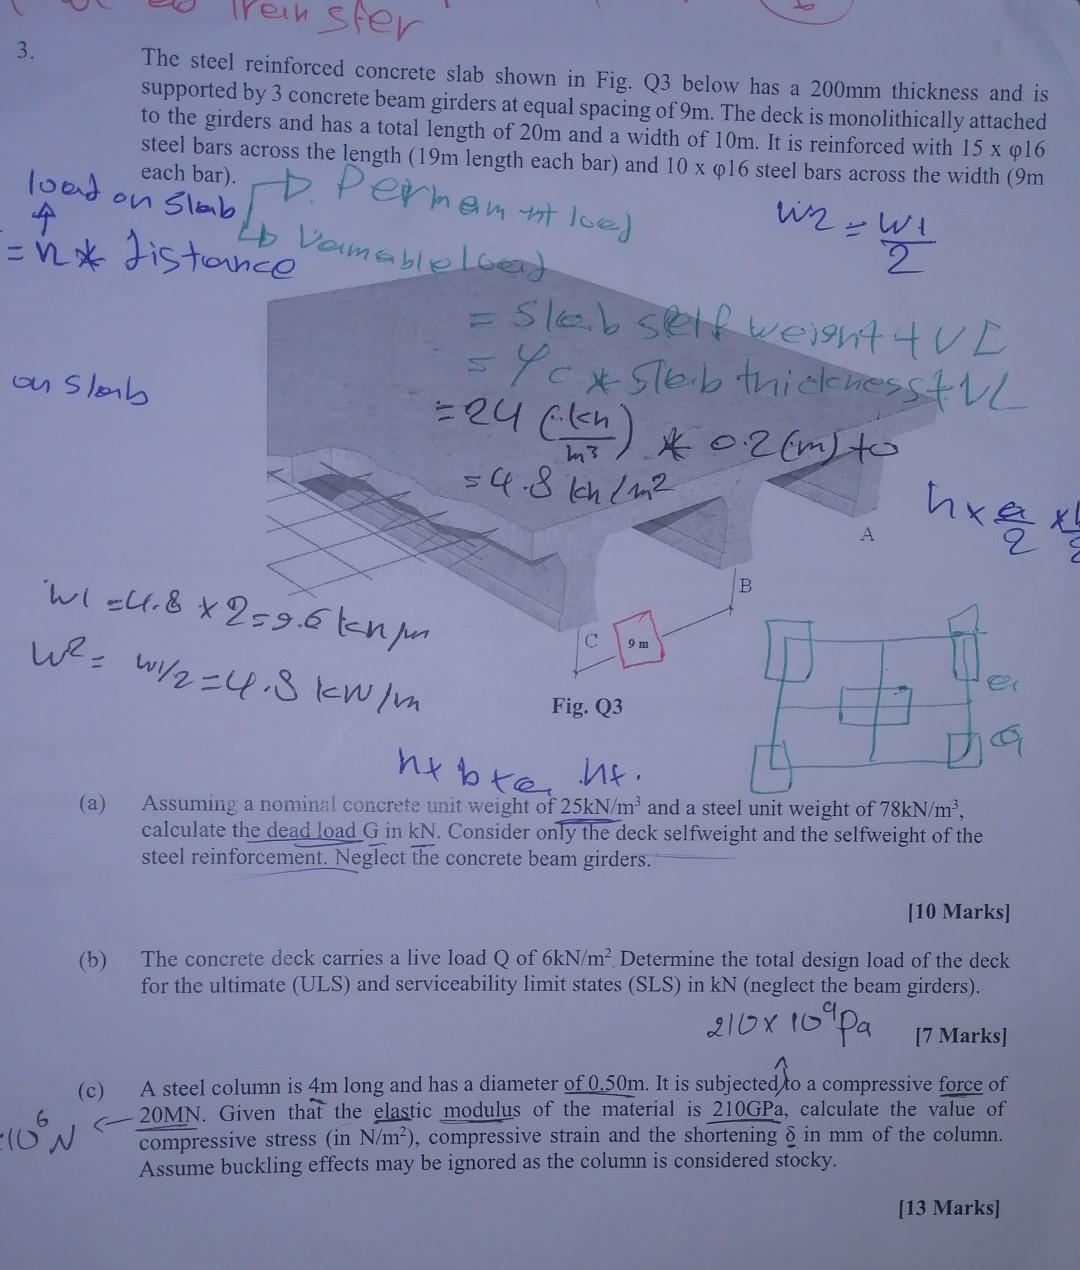 Transfer
3.
The steel reinforced concrete slab shown in Fig. Q3 below has a 200mm thickness and is
supported by 3 concrete beam girders at equal spacing of 9m. The deck is monolithically attached
to the girders and has a total length of 20m and a width of 10m. It is reinforced with 15 x φ16
steel bars across the length (19m length each bar) and 10 x φ16 steel bars across the width (9m
each bar).
load on slab
= n * distance
W2 = W1/2
= slab self weight + VL
= γc * slab thickness + VL
on slab
= 24 (kn/m3) * 0.2 (m) to
= 4.8 kn/m2
A
B
C
9 m
W1 = 4.8 x 2 = 9.6 kn/m
W2 = W1/2 = 4.8 kN/m
Fig. Q3
(a) Assuming a nominal concrete unit weight of 25kN/m³ and a steel unit weight of 78kN/m³,
calculate the dead load G in kN. Consider only the deck selfweight and the selfweight of the
steel reinforcement. Neglect the concrete beam girders.
[10 Marks]
(b) The concrete deck carries a live load Q of 6kN/m². Determine the total design load of the deck
for the ultimate (ULS) and serviceability limit states (SLS) in kN (neglect the beam girders).
210 x 10⁹ Pa
[7 Marks]
(c) A steel column is 4m long and has a diameter of 0.50m. It is subjected to a compressive force of
20MN. Given that the elastic modulus of the material is 210GPa, calculate the value of
10⁶ N
compressive stress (in N/m²), compressive strain and the shortening δ in mm of the column.
Assume buckling effects may be ignored as the column is considered stocky.
[13 Marks]